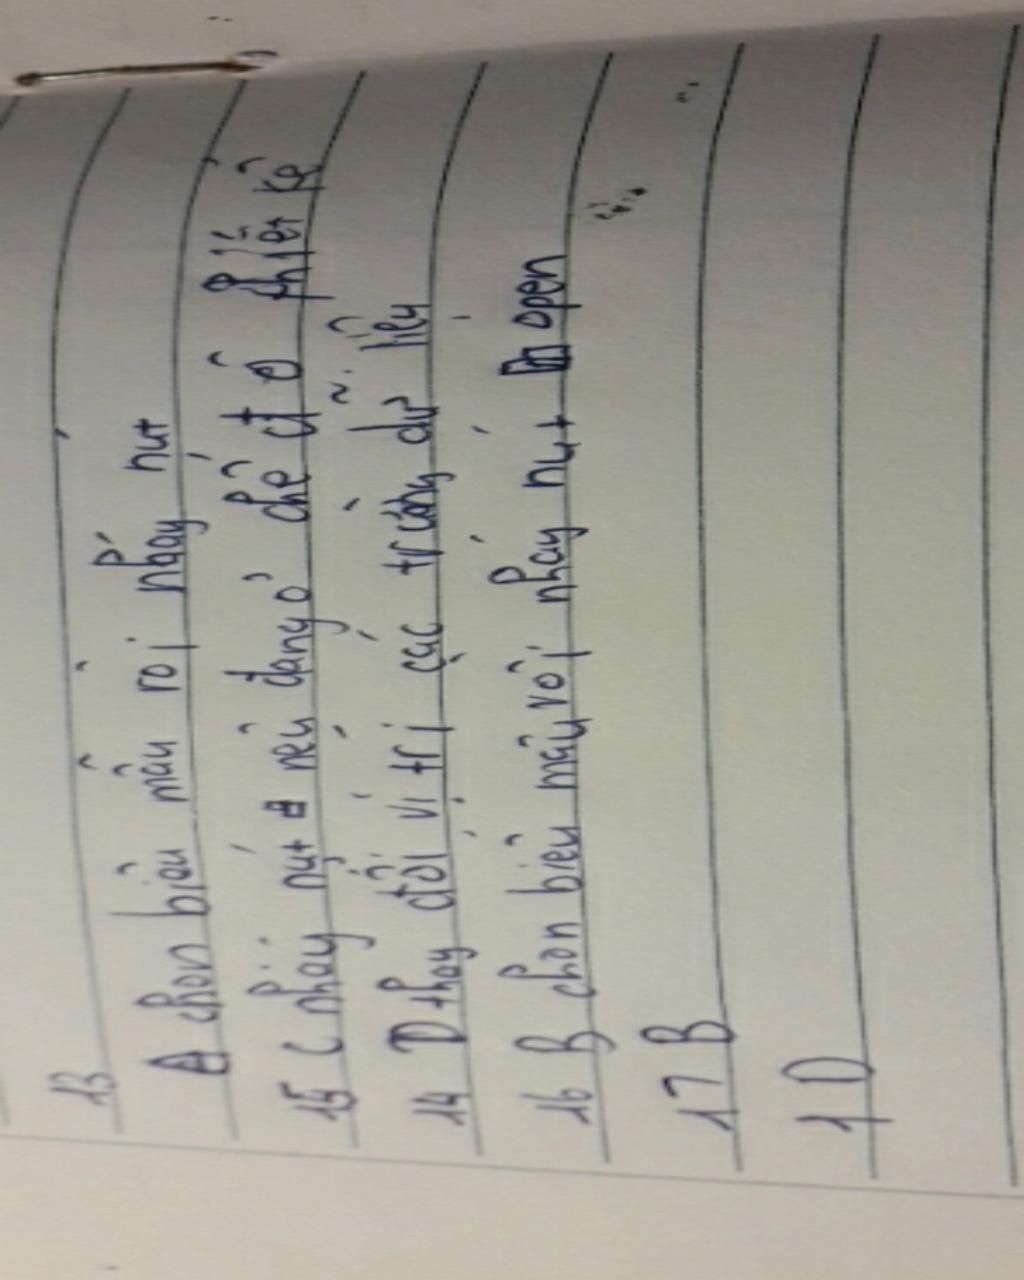 13
A chọn biểu mẫu rồi nháy nút
15 C nháy nút nếu đang ở chế độ thiết kế
14 D thay đổi vị trí các trường dữ liệu
16 B chọn biểu mẫu rồi nháy nút open
17 B
1 D